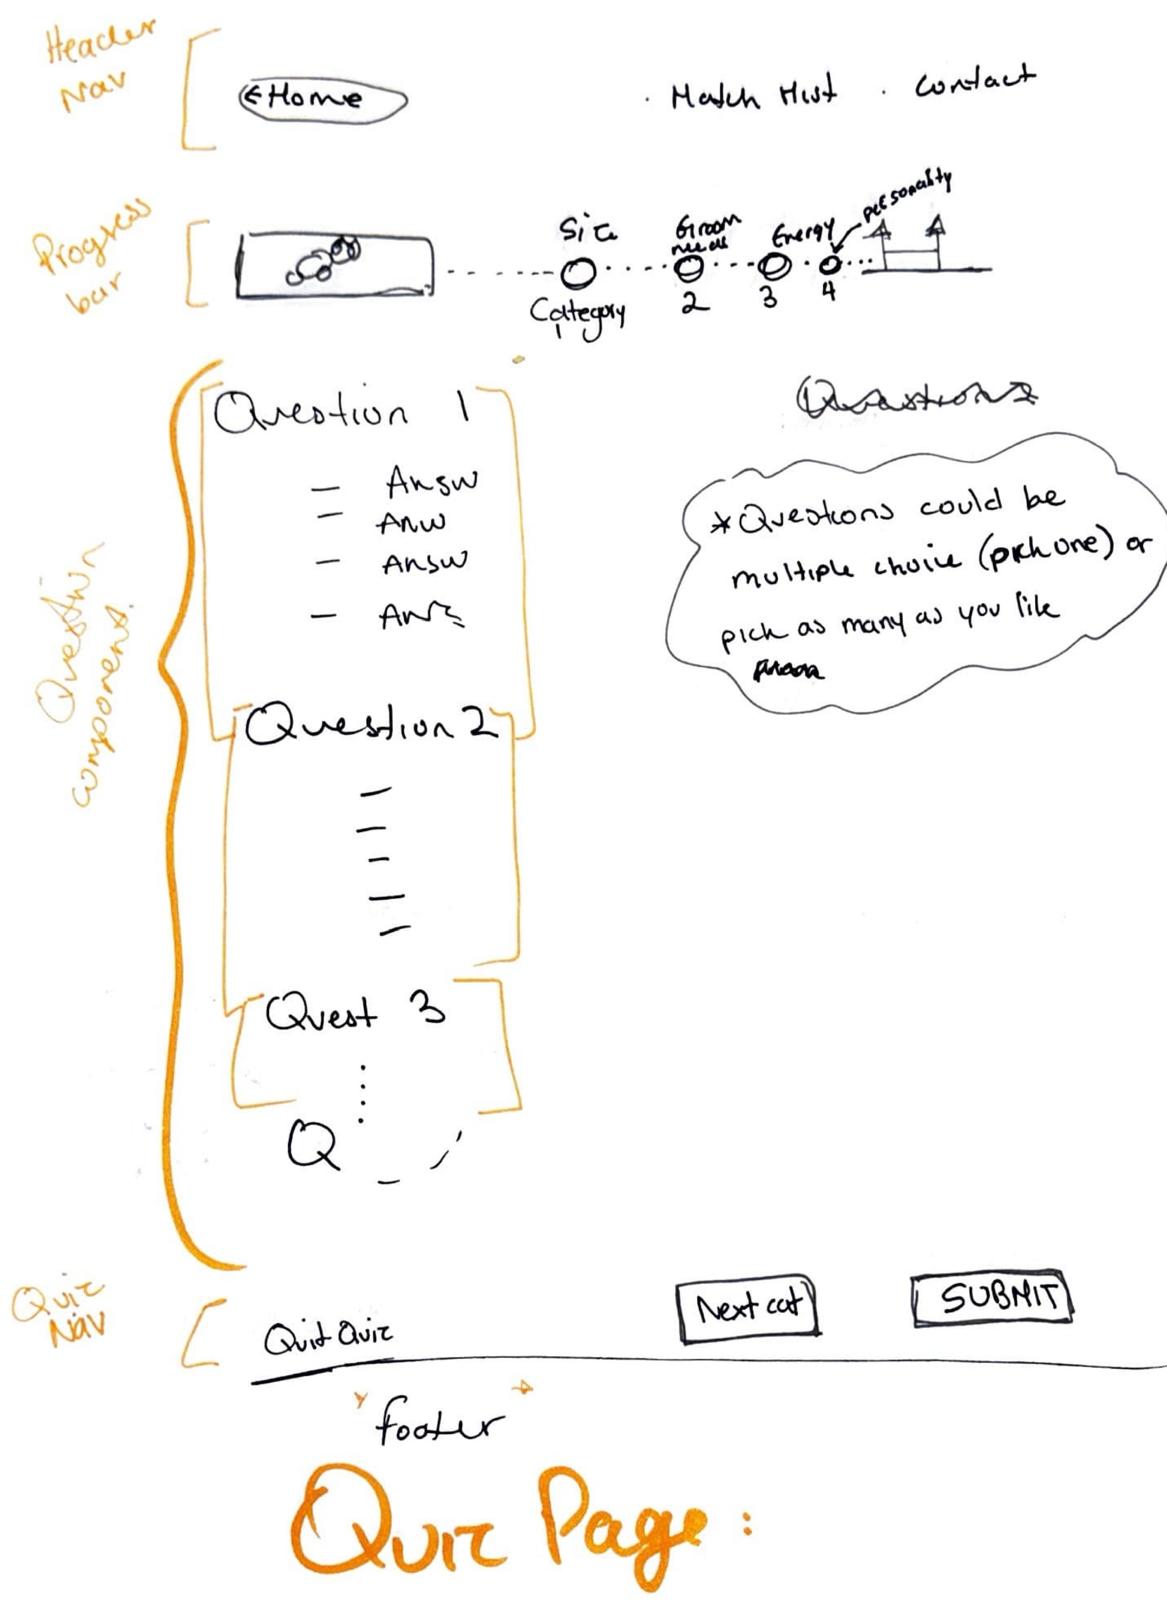 Header
Nav
←Home
· Match Hist · Contact
Progress
bar
Siz
Category
1
Groom
needs
2
Energy
3
personality
4
Question
component.
Question 1
— Answ
— Anw
— Answ
— Ans
*Questions could be
multiple choice (pick one) or
pick as many as you like
Question 2
Quest 3
Q
Quiz
Nav
Quit Quiz
Next cat
SUBMIT
footer
Quiz Page: